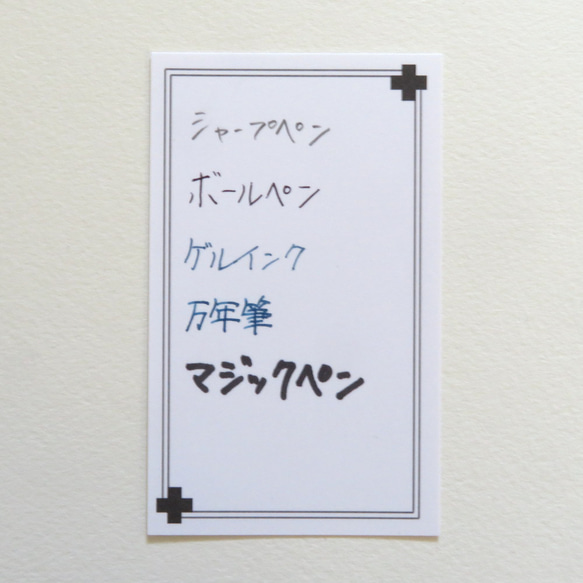 シャープペン
ボールペン
ゲルインク
万年筆
マジックペン